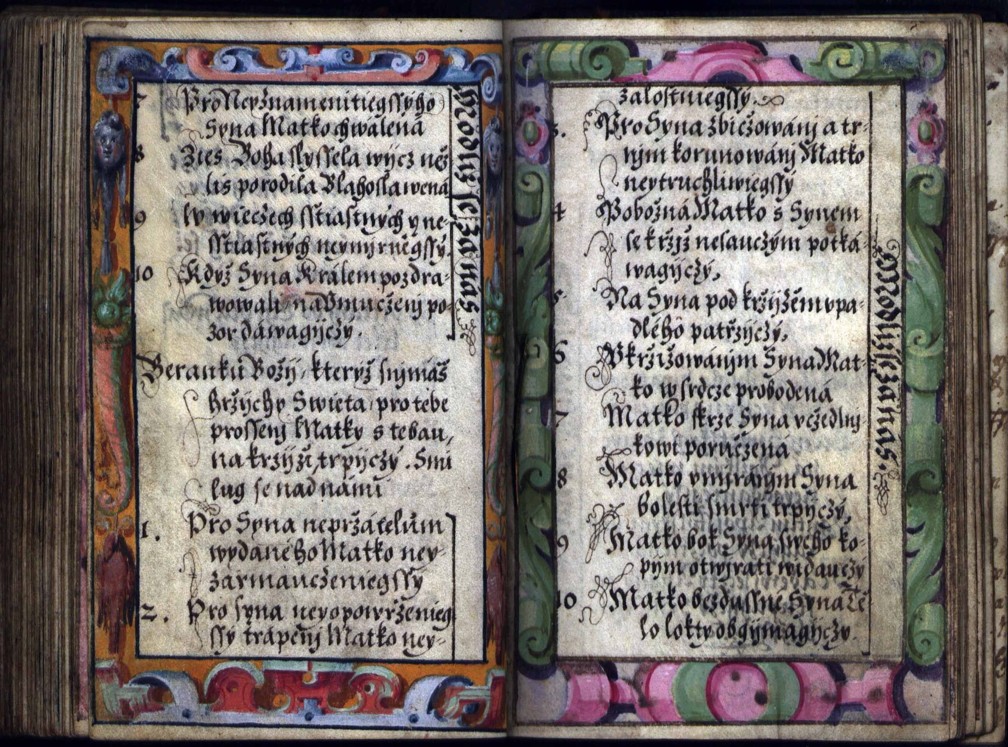 7 Pro Neyžnamenitiegssyho
Syna Matko chwalena
8 Žies Boha slyssela wycz než
lis porodila Blahoslawena
9 W wieczech sstiastnych y ne-
sstiastnych neymirniegssy
10 Když Syna Kralem pozdra-
wowali, na Vmuczeny po-
zor dawagyczy.
Beranku Božij, kteryž snymaš
hržychy Swieta, pro tebe
prosseny Matky s tebau,
na kržyži trpyczy. Smi
lug se nad nami
1. Pro Syna nepržatelům
wydaneho Matko ney-
zarmauczeniegssy
2. Pro syna neyopowrženieg
ssy trapeny Matko ney-
Modlij se za nas.
žalostniegssy.
3. Pro Syna žbicžowanj a tr-
nym korunowanj Matko
neytruchliwiegssy
4 Pobožna Matko s Synem
se kržjž nesauczym potka-
wagyczy,
5 Na Syna pod kržyžem vpa-
dleho patržyczy,
6 Vkržižowanym Syna Mat-
ko w srdcze probodena
7 Matko skrze Syna vczedlny
kowi poruczena
8 Matko vmyragym Syna
bolesti smrti trpyczy,
9 Matko bok Syna sweho ko-
pym otwjrati widauczy
10 Matko bezdussne Syna Tě
lo lokty obgymagyczy
Modlij se za nas.